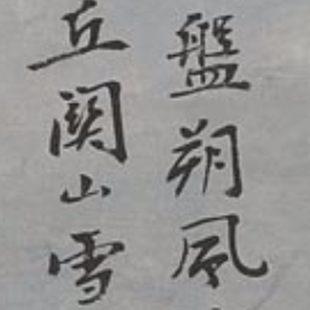 盤朔風
丘關山雪